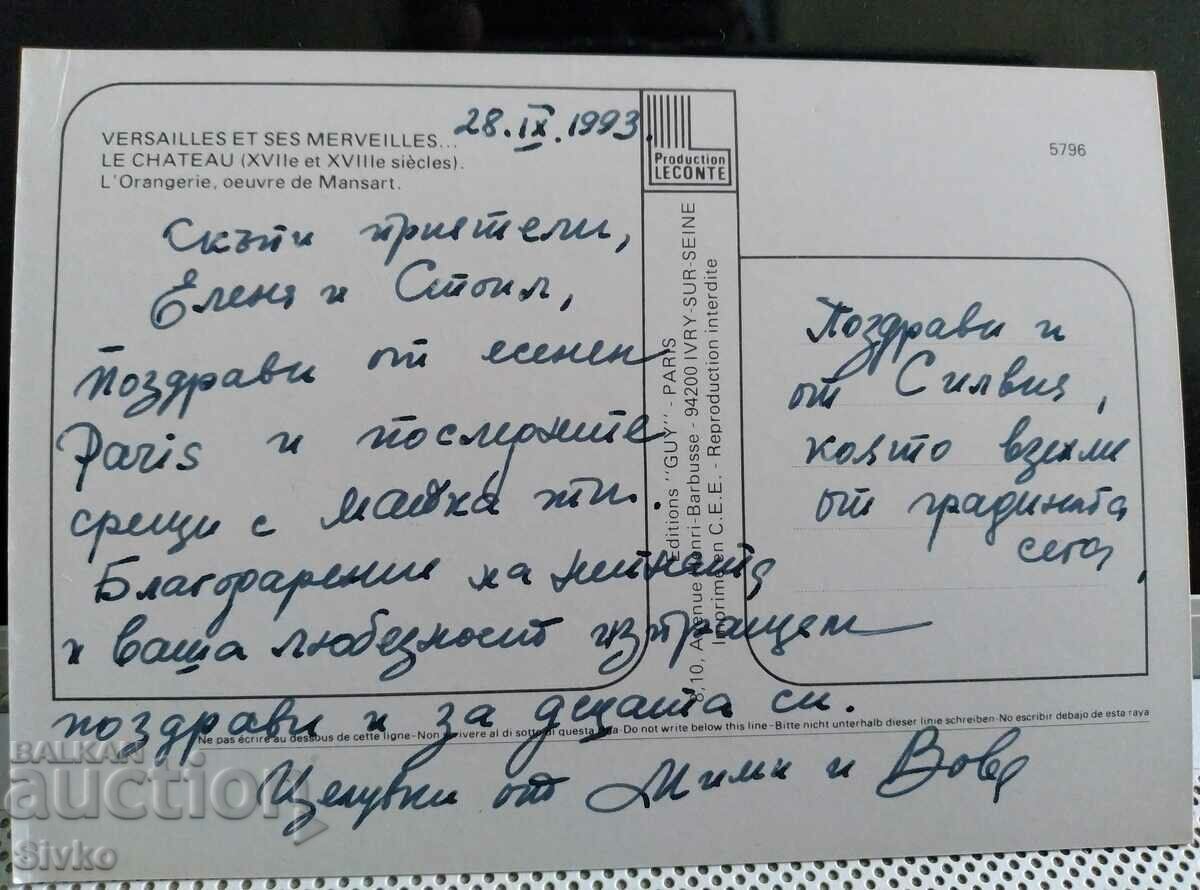 28.IX.1993.
VERSAILLES ET SES MERVEILLES...
LE CHATEAU (XVIIe et XVIIIe siècles).
L'Orangerie, oeuvre de Mansart.
Production
LECONTE
5796
Скъпи приятели,
Еленя и Стоил,
Поздрави от есенен
Paris и последните
срещи с майка ти.
Благодарение на нейната
и ваша любезност изпращам
поздрави и за децата си.
Целувки от Мими и Вова
Поздрави и
от Силвия,
която взехме
от градината
сега,
Editions "GUY" - PARIS
8,10, Avenue Henri-Barbusse - 94200 IVRY-SUR-SEINE
Imprimé en C.E.E. - Reproduction interdite
Ne pas écrire au dessous de cette ligne-Non scrivere al di sotto di questa riga-Do not write below this line-Bitte nicht unterhalb dieser linie schreiben-No escribir debajo de esta raya
BALKAN
auction
Sivko